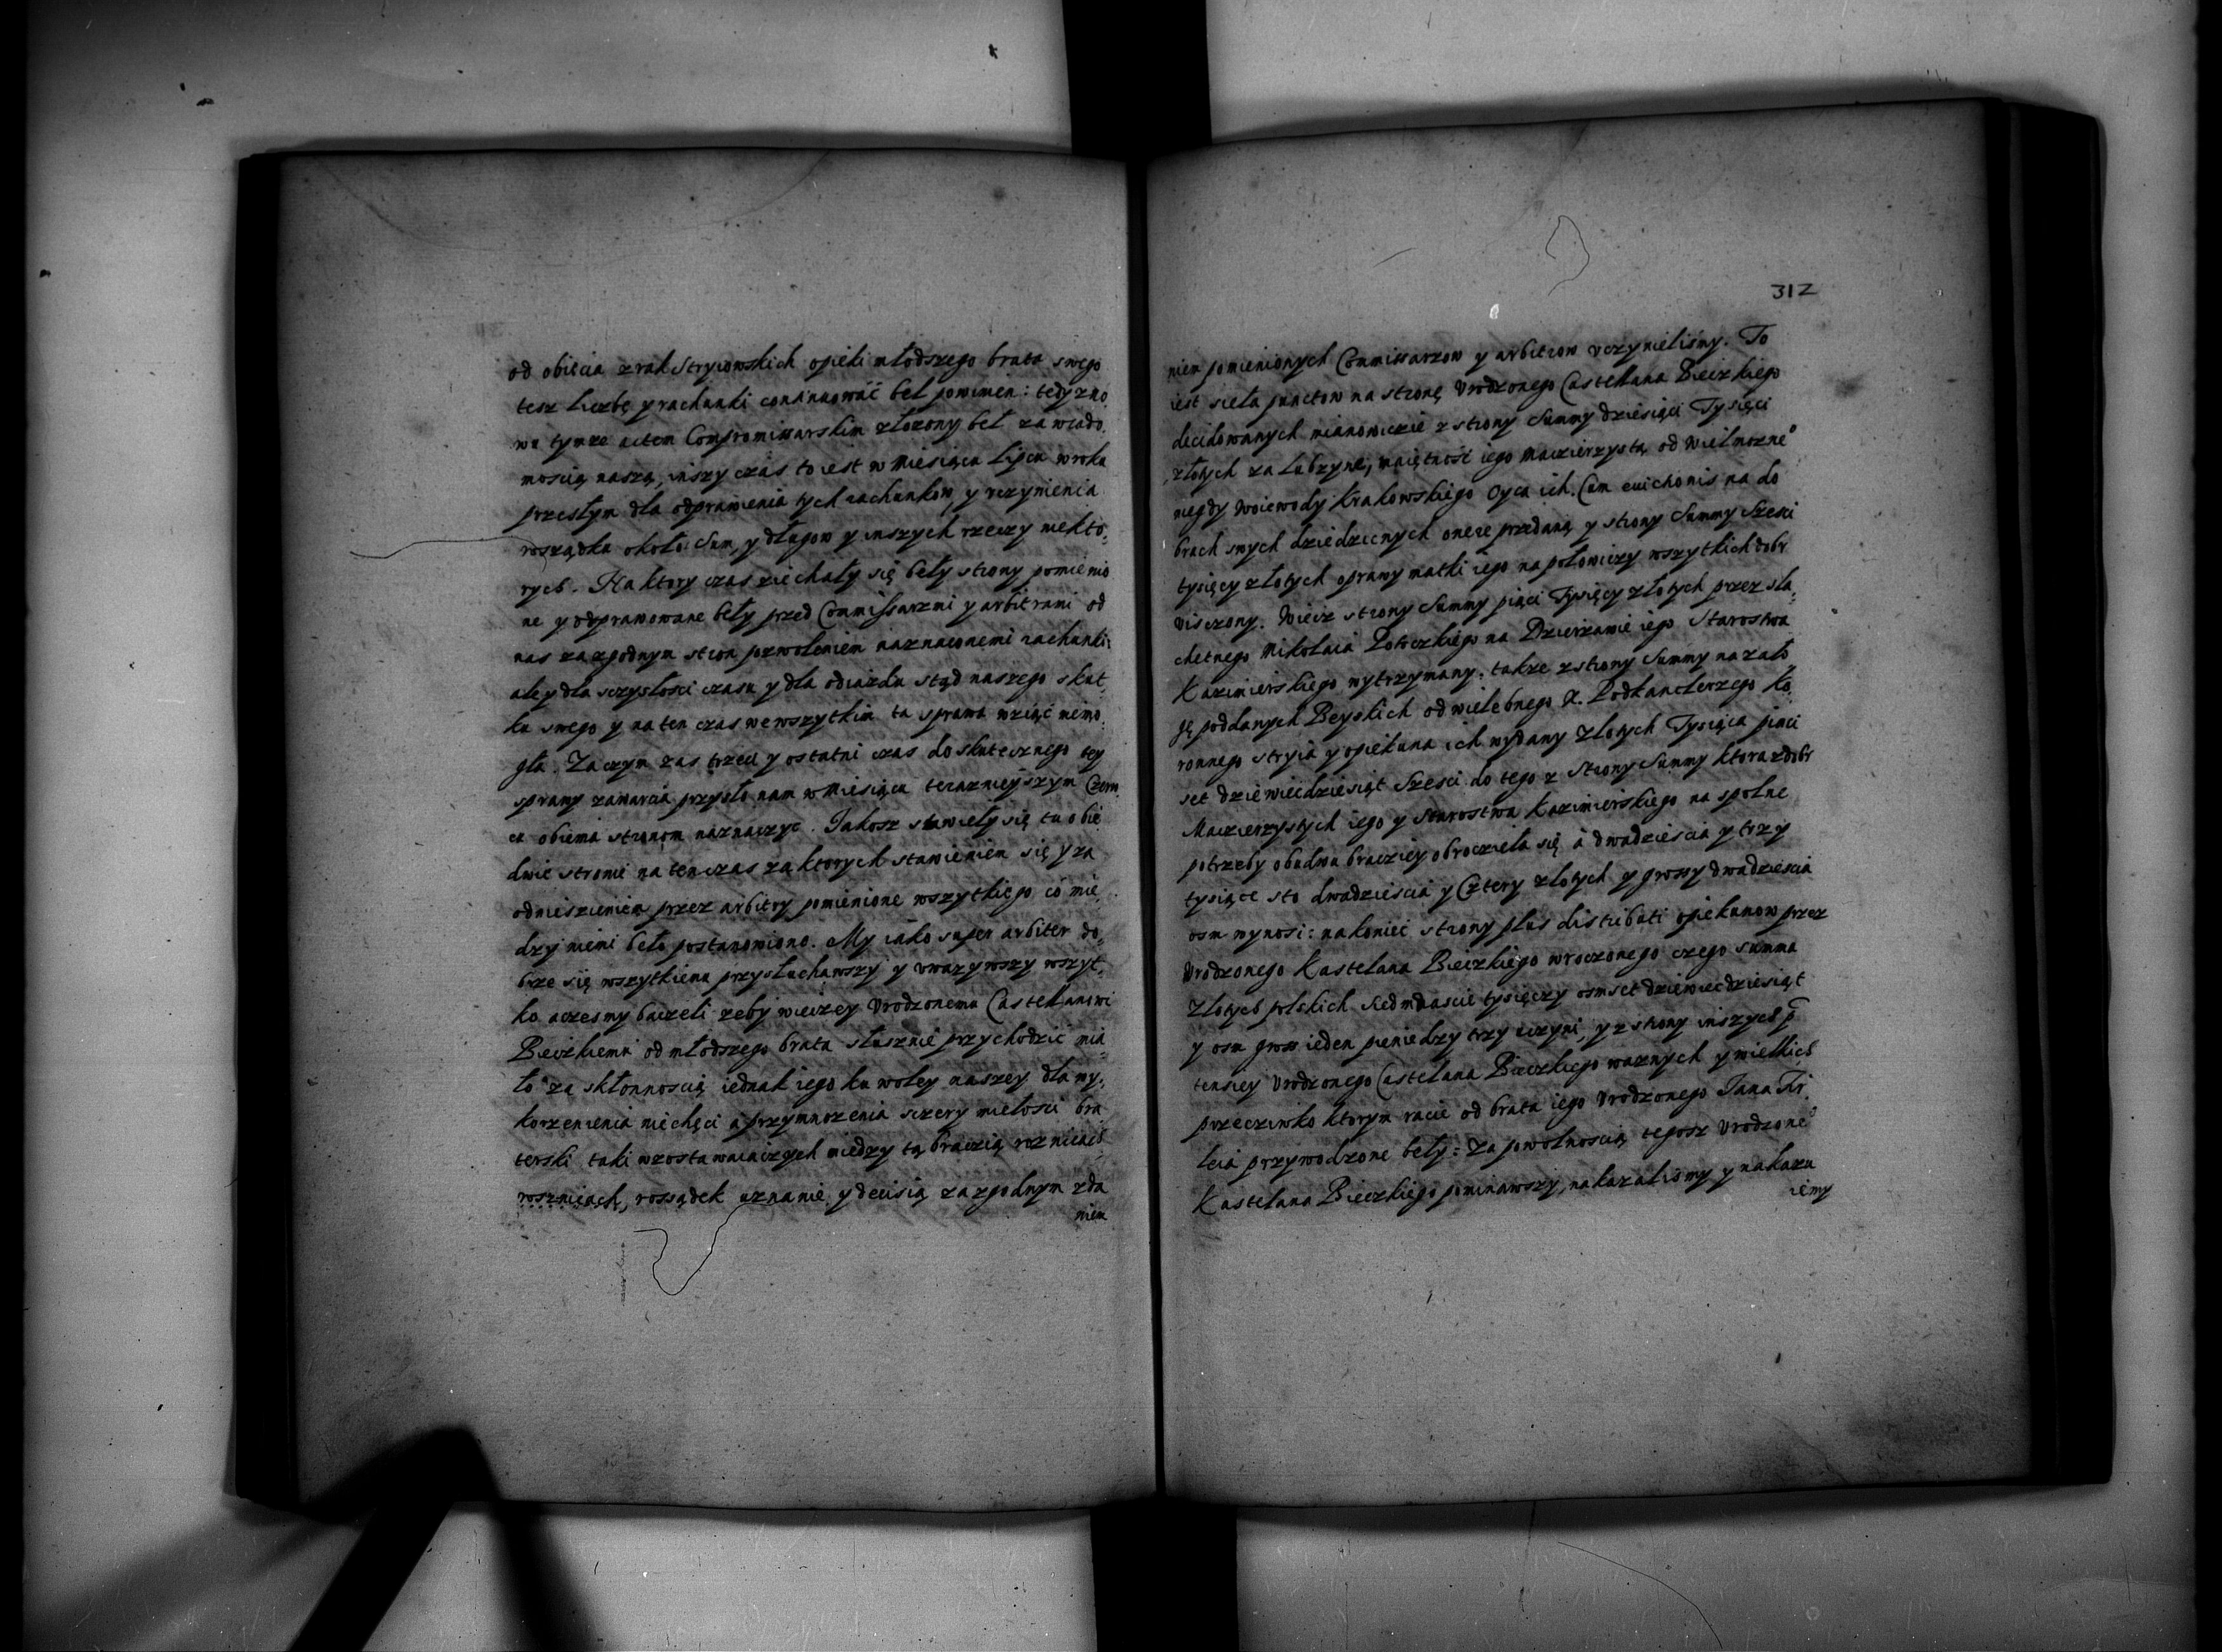 od obięcia z rąk Stryiowskich opieki młodszego brata swego
tesz Liczbę y rachunki continuować beł powinien: tedy zno
wu tymze actem Compromissarskim złozony beł za wiado,
moscią naszą, inszy czas to iest w Miesiącu Lipcu w roku
przeszłym dla odprawienia tych rachunkow, y vczynienia
rosządku około Sum, y długow y inszych rzeczy niekto,
rych. Na ktory czas ziechały się beły strony pomienio
ne y odprawowane beły przed Commissarzmi y arbitrami od
nas za zgodnym stron pozwoleniem naznaczonemi rachunki:
ale y dla sczupłosci czasu y dla odiazdu stąd naszego skut,
ku swego y na ten czas we wszytkim ta sprawa wziąć niemo,
gła. Zaczym zas trzeci y ostatni czas do skutecznego tey
sprawy zawarcia przyszło nam w Miesiącu teraznieyszym Czerw
cu obiema stronom naznaczyc. Jakosz stawieły się tu obie
dwie stronie na ten czas za ktorych stawieniem się y za
odniesieniem przez arbitry pomienione wszytkiego co mie,
dzy niemi beło postanowiono. My iako super arbiter do,
brze się wszytkiemu przysłuchawszy y vwazywszy wszyt,
ko. aczesmy baczeli zeby wieczey Vrodzonemu Castellanowi
Bieczkiemu od młodszego brata słusznie przychodzić mia,
ło za skłonnoscią iednak iego ku woley naszey dla wy,
korzenienia niechęci a przymnozenia sczery miełosci bra
terski taki wzostawaiaczych miedzy tą braczią roznicach
roznicach, rossądek uznanie y decisią za zgodnym zda
niem
312
niem pomienionych Commissarzow y arbitrow vczynieliśmy. To
iest sieła punctow na stronę Vrodzonego Castellana Bieczkiego
decidowanych mianowiczie z strony Summy dziesiąci Tysięci
złotych za Lubzynę, maiętność iego Macierzystą od Wielmozne°
niegdy Woiewody Krakowskiego Oyca ich. Cum euictionis na do
brach swych dziedzicnych onere przedaną y strony Summy Szesci
tysięcy złotych oprawy matki iego na połowiczy wszytkich dobr
visczony. Wiecz strony Summy piąci Tysięcy złotych przez sla,
chetnego Mikołaia Potoczkiego na Dzierzawie iego Starostwa
Kazimierskiego wytrzymany. takze z strony Summy na zało
gę poddanych Beyskich od wielebnego X. Podkanclerzego Ko,
ronnego stryia y opiekuna ich wydany złotych Tysiąca piąci
set dziewiecdziesiąt Szesci. do tego z Strony Summy ktora z dobr
Macierzystych iego y Starostwa Kazimierskiego na spolne
potrzeby obudwu braciey obroczieła się a dwadziescia y trzy
tysiące sto dwadziescia y Cztery złotych y groszy dwadziescia
osm wynosi: na koniec strony plus distributi opiekunow przez
Vrodzonego Kastelana Bieczkiego wroczonego czego summa
Złotych polskich siedmnascie tysięczy osmset dziewiecdziesiąt
y osm grosz ieden pieniedzy trzy uczyni, y z strony inszych p̄
tensiey Vrodzonego Castelana Bieczkiego waznych y wielkich
przeciwko ktorym racie od brata iego Vrodzonego Jana Fir
leia przywodzone beły: Za powolnoscią tegosz Vrodzone°
Kastelana Bieczkiego pominawszy, nakazalismy y nakazu
iemy